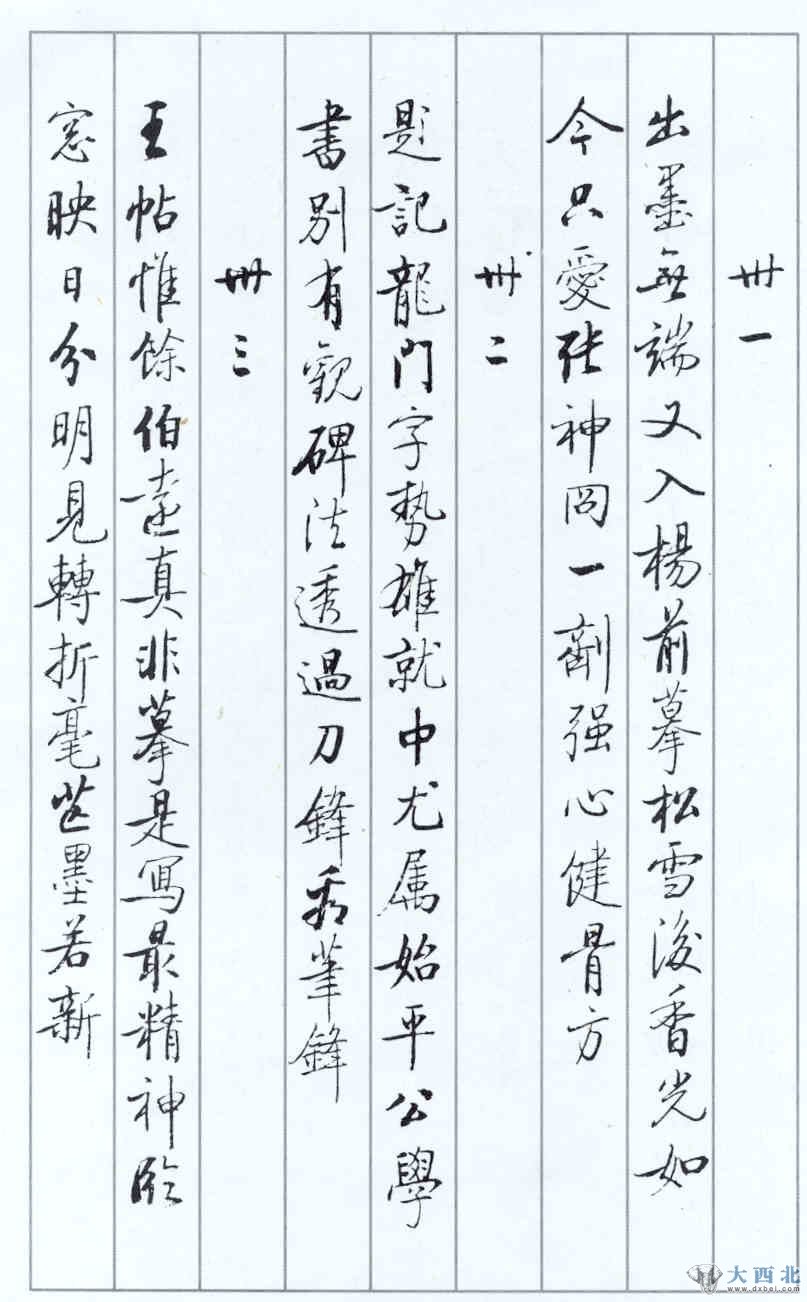 卌一
出墨無端又入楊前摹松雪後香光如
今只愛張神冏一劑强心健骨方
卌二
題記龍門字勢雄就中尤属始平公學
書別有觀碑法透過刀鋒看筆鋒
卌三
王帖惟餘伯遠真非摹是寫最精神臨
窓映日分明見轉折毫芒墨若新
大西北
www.dxbei.com